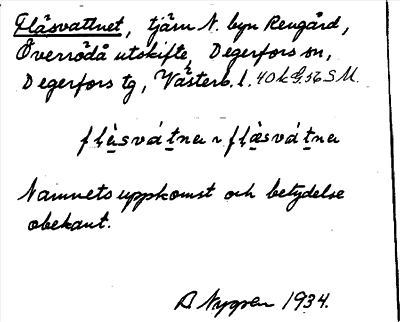 Fläsvattnet, tjärn N. byn Rengård,
Överrödå utskifte, Degerfors sn,
Degerfors tg, Västerb. l. 40 k G. 56 S M.
flæ̀sváʹtnɐ ~ flæ̀sváʹtnɐ
Namnets uppkomst och betydelse
obekant.
D Nygren 1934.